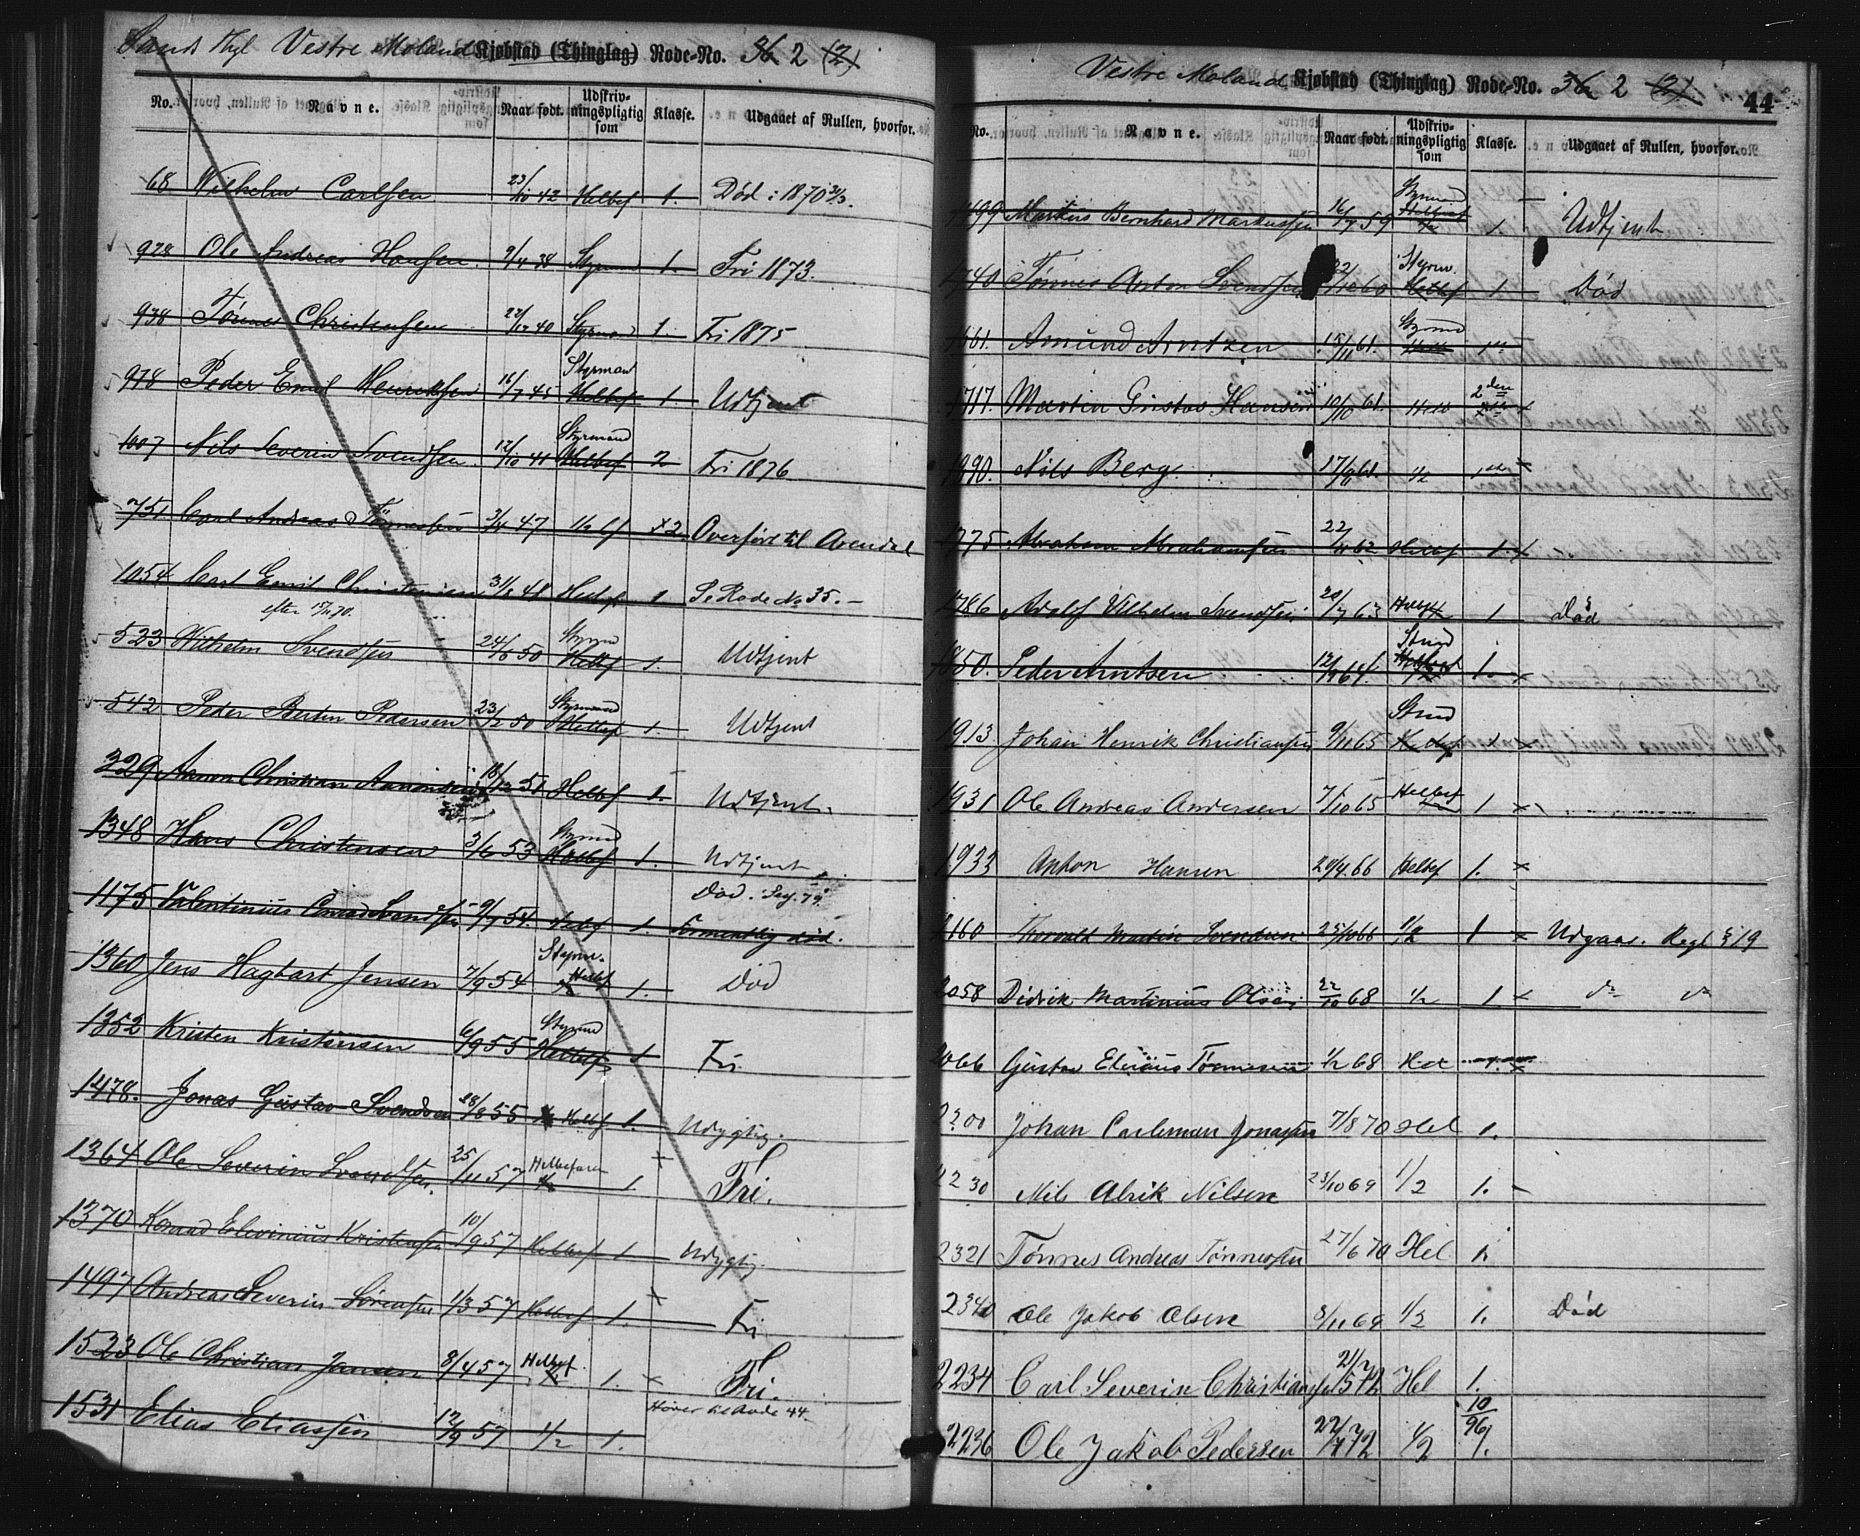 Vestre Moland Kjøbstad (Thinglag) Rode-No. 36 2 (2)
No. Navne. Naar født. Udskriv-ningspligtig som Klasse. Udgaaet af Rullen, hvorfor.
68 Wilhelm Carlsen 23/10 42 Helbef 1. Død i 1870
928 Ole Andreas Hansen 9/4 38 Styrmd 1. Fri 1873.
938 Tønnes Christensen 40 Styrmd 1. Fri 1875
978 Peder Emil Henriksen 16/7 45 Styrman Helbef 1. Udtjent
1007 Nils Severin Svendsen 12/10 41 Styrmand Helbef 2 Fri 1876
751 Carl Andreas Tønnesen 3/4 47 Helbf 2 Overført til Arendal
1054 Carl Emil Christensen 48 Helbf 1 Se Rode No 35.
efter
523 Wilhelm Svendsen 24/8 50 Styrmd Helbf 1. Udtjent
542 Peder Bertin Pedersen 23/2 50 Styrmand Helbef 1. Udtjent
329 Aanon Christian Aanonsen 51 Helbef 1. Udtjent
1348 Hans Christensen 3/6 53 Styrmd Helbef 1. Udtjent
1175 Valentinius Conrad Svendsen 9/7 54. Helbf 1. Død. Formentlig død.
1360 Jens Hagbart Jensen 7/9 54 Styrm. Helbf 1. Død
1352 Kristen Kristensen 6/9 55 Styrmd Helbef 1 Fri.
1478. Jonas Gustav Svendsen 28/8 55 Helbf 1. Udygtig.
1364 Ole Severin Svendsen. 25/11 57 Helbefaren 1. Fri.
1370 Konrad Edevinius Kristensen 10/9 57 Helbef 1 Udygtig.
1497 Andreas Severin Sørensen 1/3 57 Helbef 1. Fri
1523 Ole Christian Jansen 8/4 57 Helbef. 1/2 1. Fri.
1531 Elias Eliassen 12/9 57 1/2 1. Hører til Rode 44
Vestre Moland Kjøbstad (Thinglag) Rode-No. 36 2 (2) 44
No. Navne. Naar født. Udskriv-ningspligtig som Klasse. Udgaaet af Rullen, hvorfor.
1699 Markus Bernhard Markussen 16/7 59 Styrmd 1/2 1 Udtjent
1740 Tønnes Anton Svendsen 60 Styrm. Helbf 1 Død
1661. Amund Arntzen 15/11 61. Styrmd
1717. Martin Gustav Hansen 19/10 61. 2den
1690. Nils Berg. 61. 1/2
1775 Abraham Abrahamsen 22/11 62 Helbf 1.
1786 Adolf Vilhelm Svendsen 20/7 63 Helbf 1 Død
1850. Peder Arntsen 64. Strmd 1.
1913 Johan Henrik Christiansen 9/11 65 Strmd 1
1931 Ole Andreas Andersen 7/10 65 Helbef 1
1933 Anton Hansen 20/4. 66 Helbef 1.
2160 Thorvald Martin Svendsen 25/10 66 1/2 1 Udgaar. Regl § 19
2058 Didrik Martinius Olsen 22/10 68 1/2 1. do do
2066 Gustav Elenius Tønnesen 1/2 68 Hel 1.
2200 Johan Carleman Jonassen 7/8 70 Hel 1.
2230 Nils Alrik Nilsen 23/10 69 1/2 1.
2321 Tønnes Andreas Tønnessen 27/6 70 Hel 1.
2340 Ole Jakob Olsen 8/11 69 1/2 1. Død
2234 Carl Severin Christiansen 21/5 72 Hel 1.
2236 Ole Jakob Pedersen 72 1/2 10/96 1.